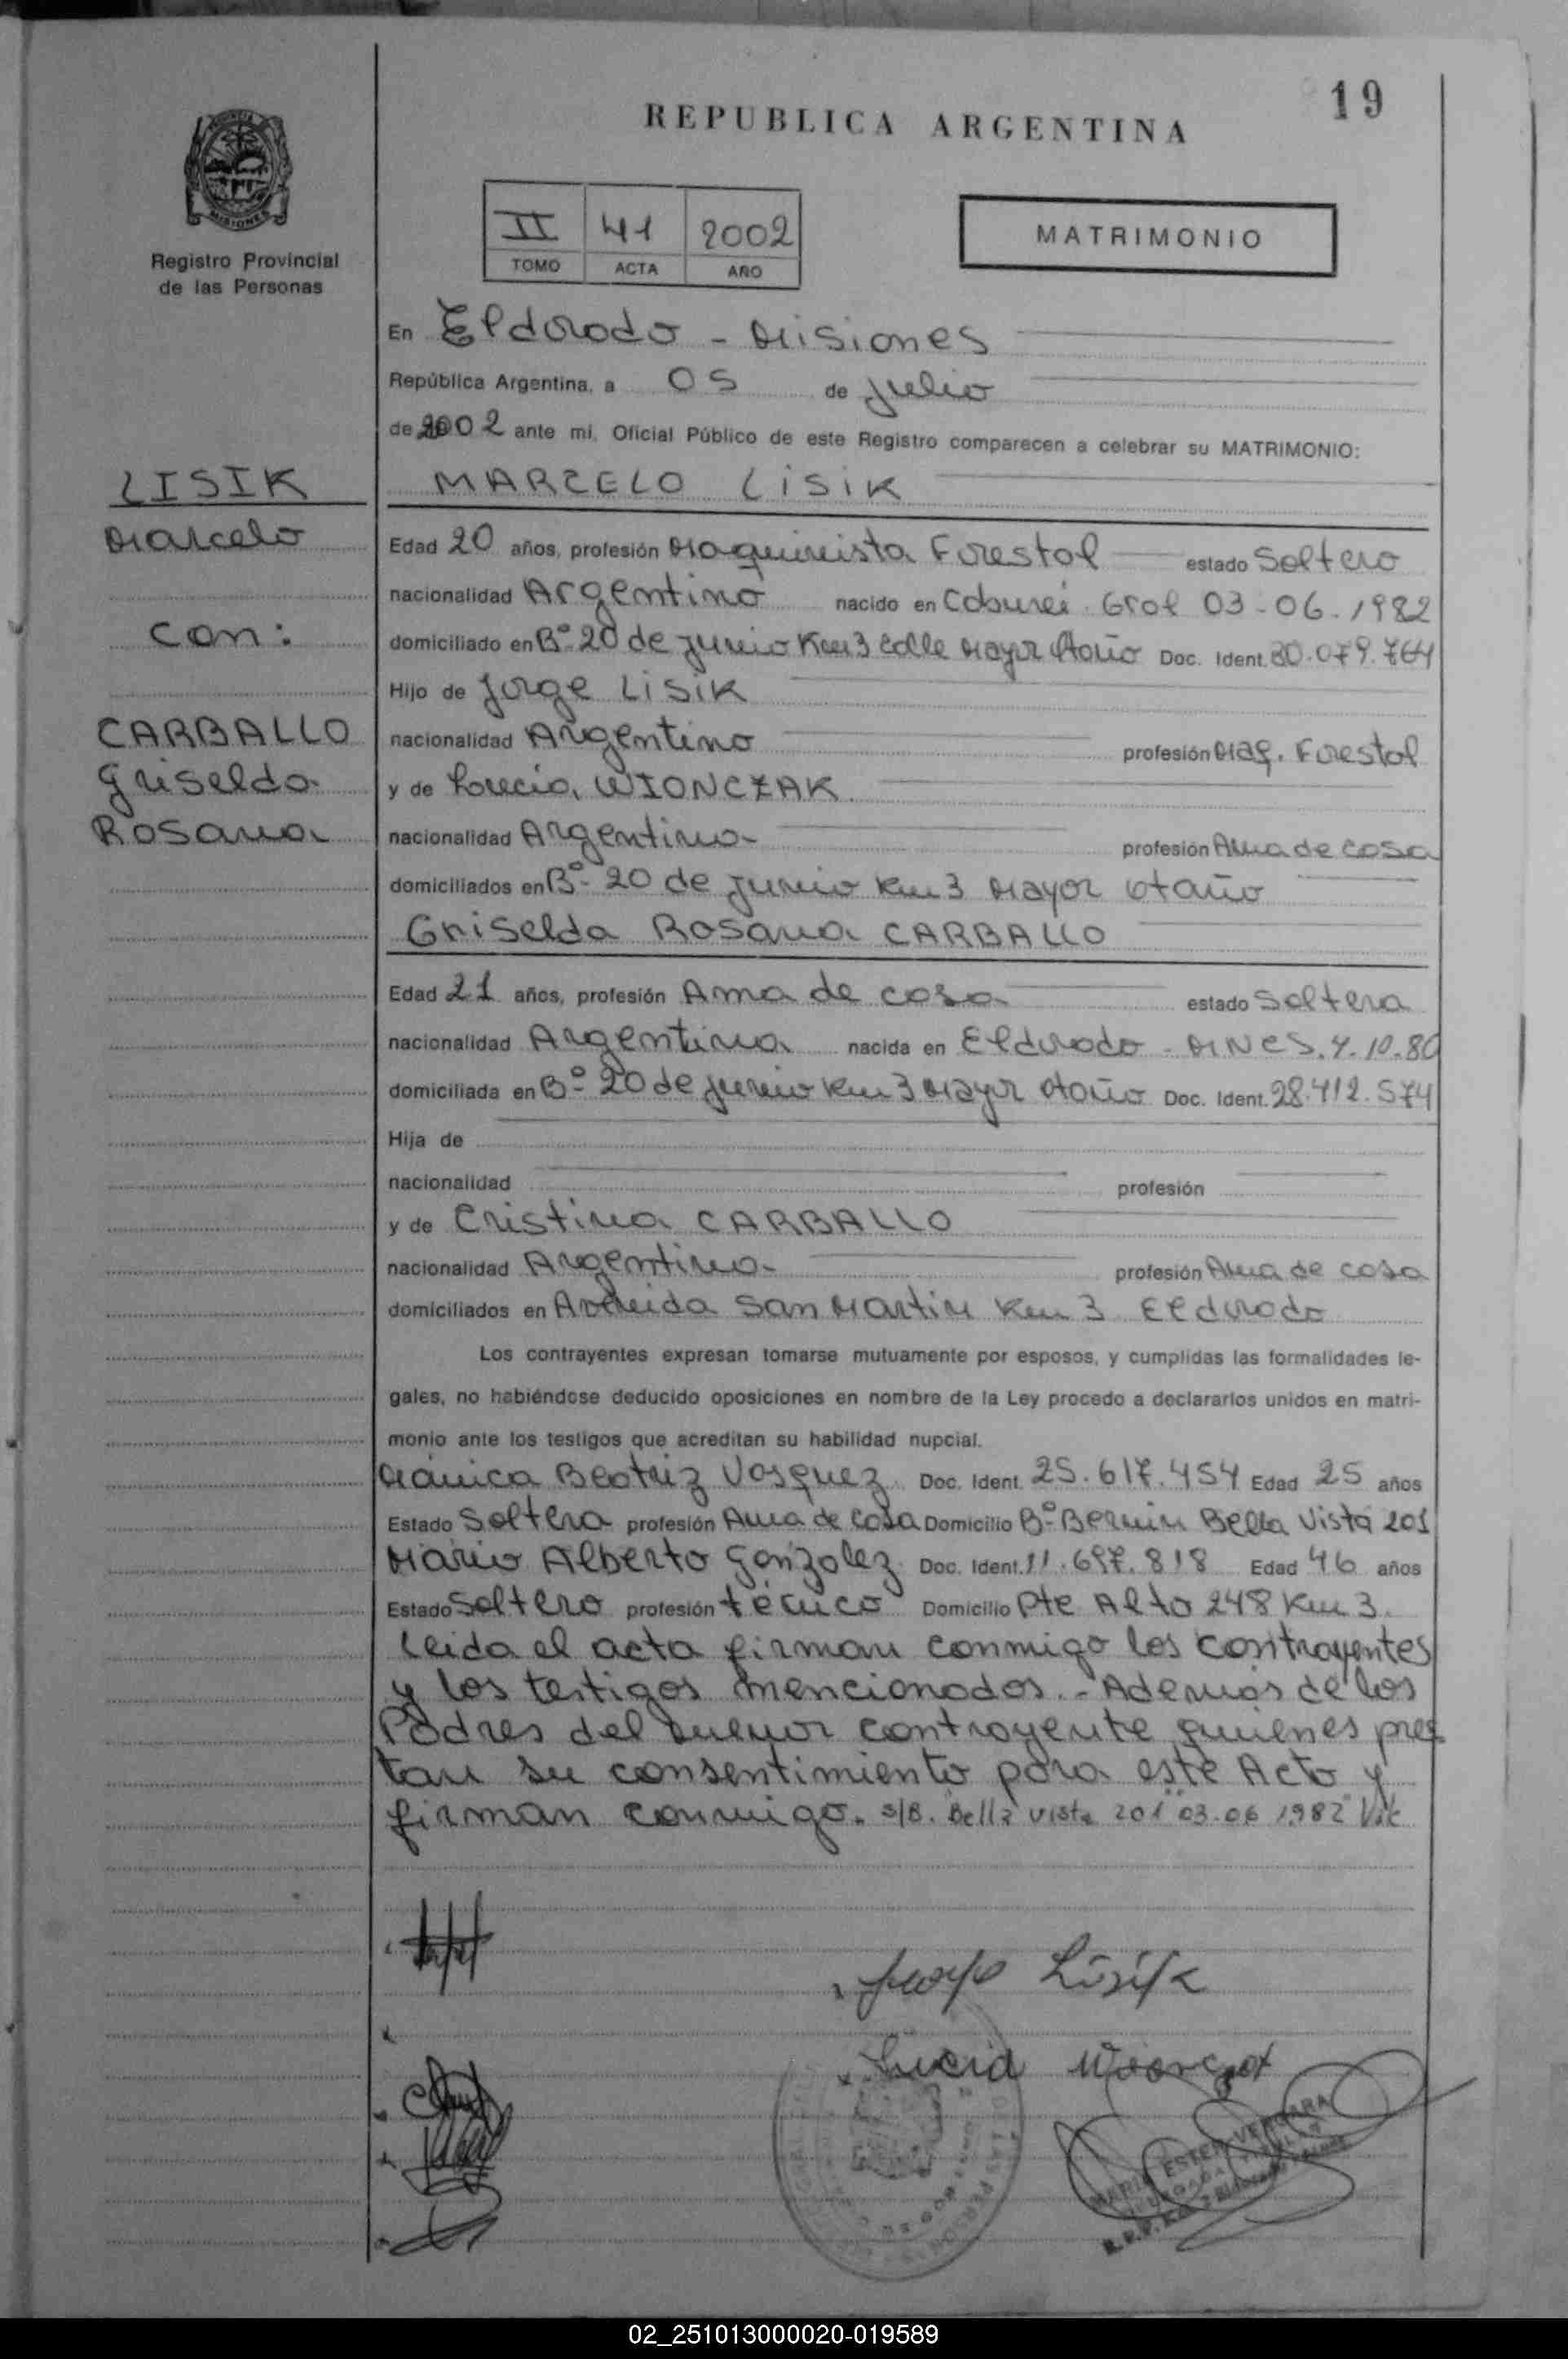 19
REPUBLICA ARGENTINA
PROVINCIA DE
MISIONES
Registro Provincial
de las Personas
II 41 2002
TOMO ACTA AÑO
MATRIMONIO
En Eldorado - Misiones
República Argentina, a 05 de julio
de 2002 ante mi, Oficial Público de este Registro comparecen a celebrar su MATRIMONIO:
LISIK
Marcelo
con:
CARBALLO
Griselda
Rosana
MARCELO LISIK
Edad 20 años, profesión Maquinista Forestal estado Soltero
nacionalidad Argentino nacido en Coburei. Gral 03-06.1982
domiciliado en Bº- 20 de junio Km 3 calle Mayor Otaño Doc. Ident. 30.079.764
Hijo de Jorge LISIK
nacionalidad Argentino profesión Maq. Forestal
y de Lucia, WIONCZAK
nacionalidad Argentina profesión Ama de casa
domiciliados en Bº- 20 de junio Km 3 Mayor Otaño
Griselda Rosana CARBALLO
Edad 21 años, profesión Ama de casa estado Soltera
nacionalidad Argentina nacida en Eldorado - MNES. 4.10.80
domiciliada en Bº- 20 de junio Km 3 Mayor Otaño Doc. Ident. 28.412.574
Hija de
nacionalidad profesión
y de Cristina CARBALLO
nacionalidad Argentina profesión Ama de casa
domiciliados en Avenida San Martin Km 3 Eldorado
Los contrayentes expresan tomarse mutuamente por esposos, y cumplidas las formalidades le-
gales, no habiéndose deducido oposiciones en nombre de la Ley procedo a declararlos unidos en matri-
monio ante los testigos que acreditan su habilidad nupcial.
Mónica Beatriz Vasquez Doc. Ident. 25.617.454 Edad 25 años
Estado Soltera profesión Ama de Casa Domicilio Bº- Bernin Bella Vista 201
Mario Alberto Gonzalez Doc. Ident. 11.697.818 Edad 46 años
Estado Soltero profesión técnico Domicilio Pte Alto 248 Km 3.
Leida el acta firman conmigo los contrayentes
y los testigos mencionados.- Además de los
Padres del menor contrayente quienes pres
tan su consentimiento para este Acto y
firman conmigo. s/B. Bella vista 201 "03.06 1982" Vale
Jorge Lisik
Lucia
MARIA ESTER VERGARA
DELEGADA TITULAR
02_251013000020-019589